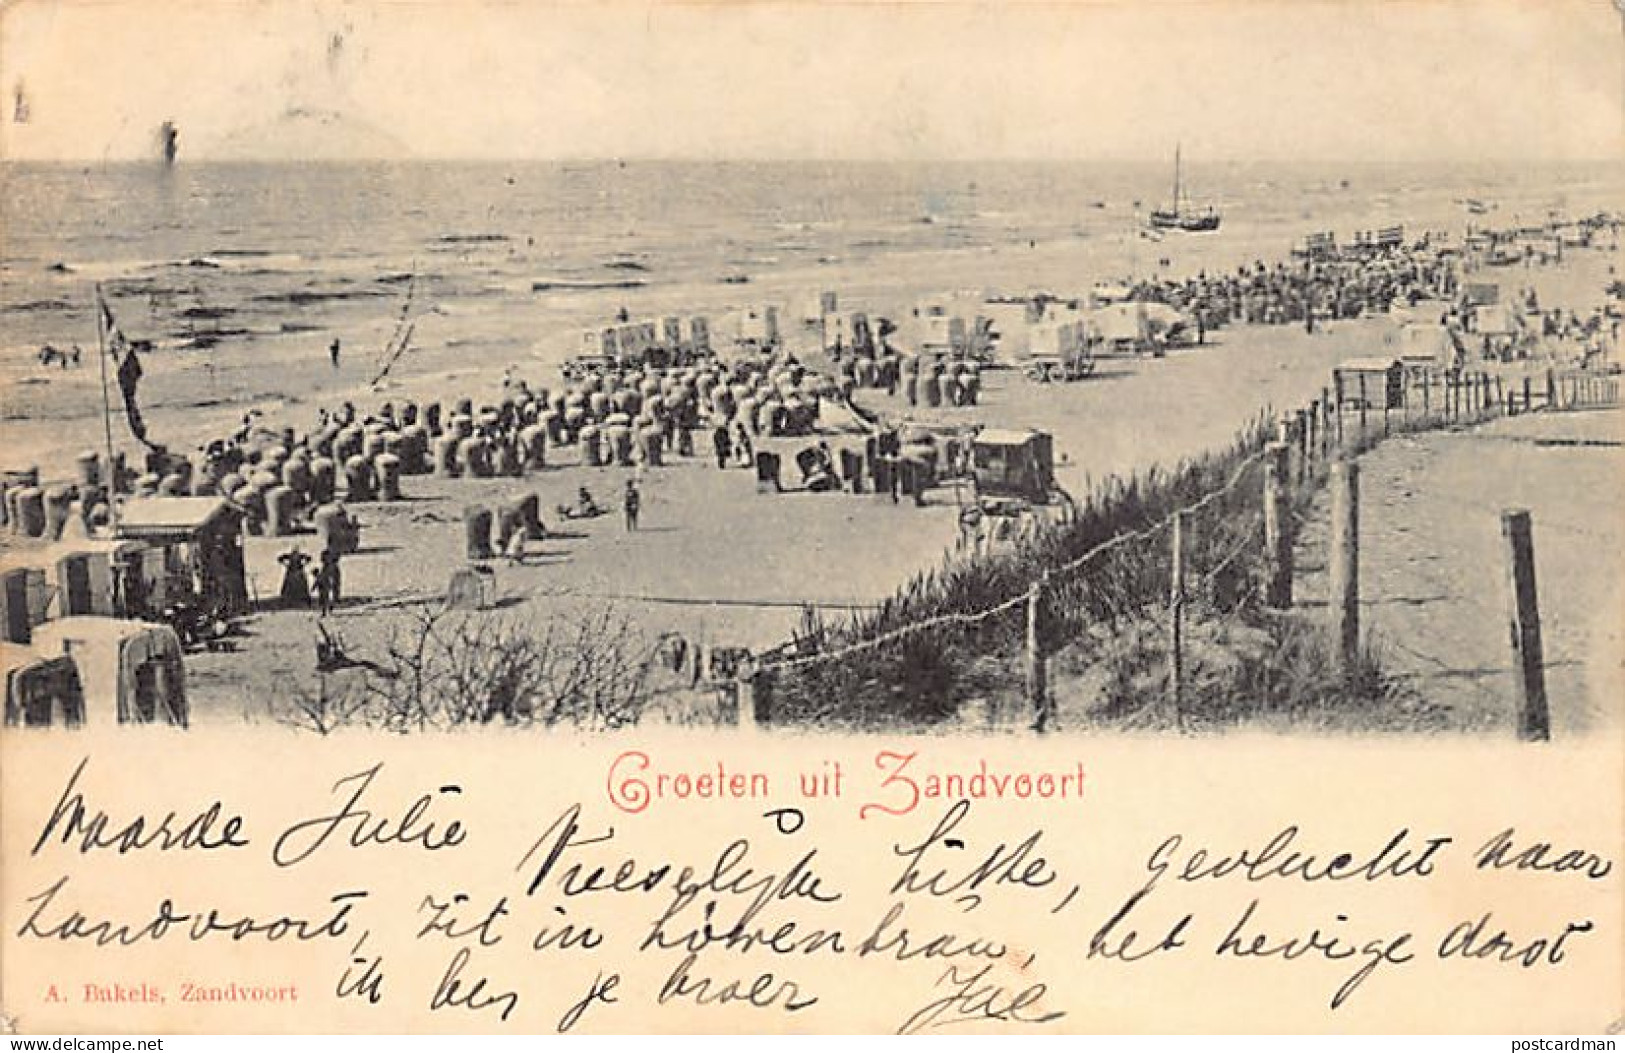 Groeten uit Zandvoort
Waarde Julie
Vreeselijke hitte, gevlucht naar
Zandvoort, zit in Löwenbräu, heb hevige dorst
ik ben je broer
A. Bakels, Zandvoort
delcampe.net
postcardman